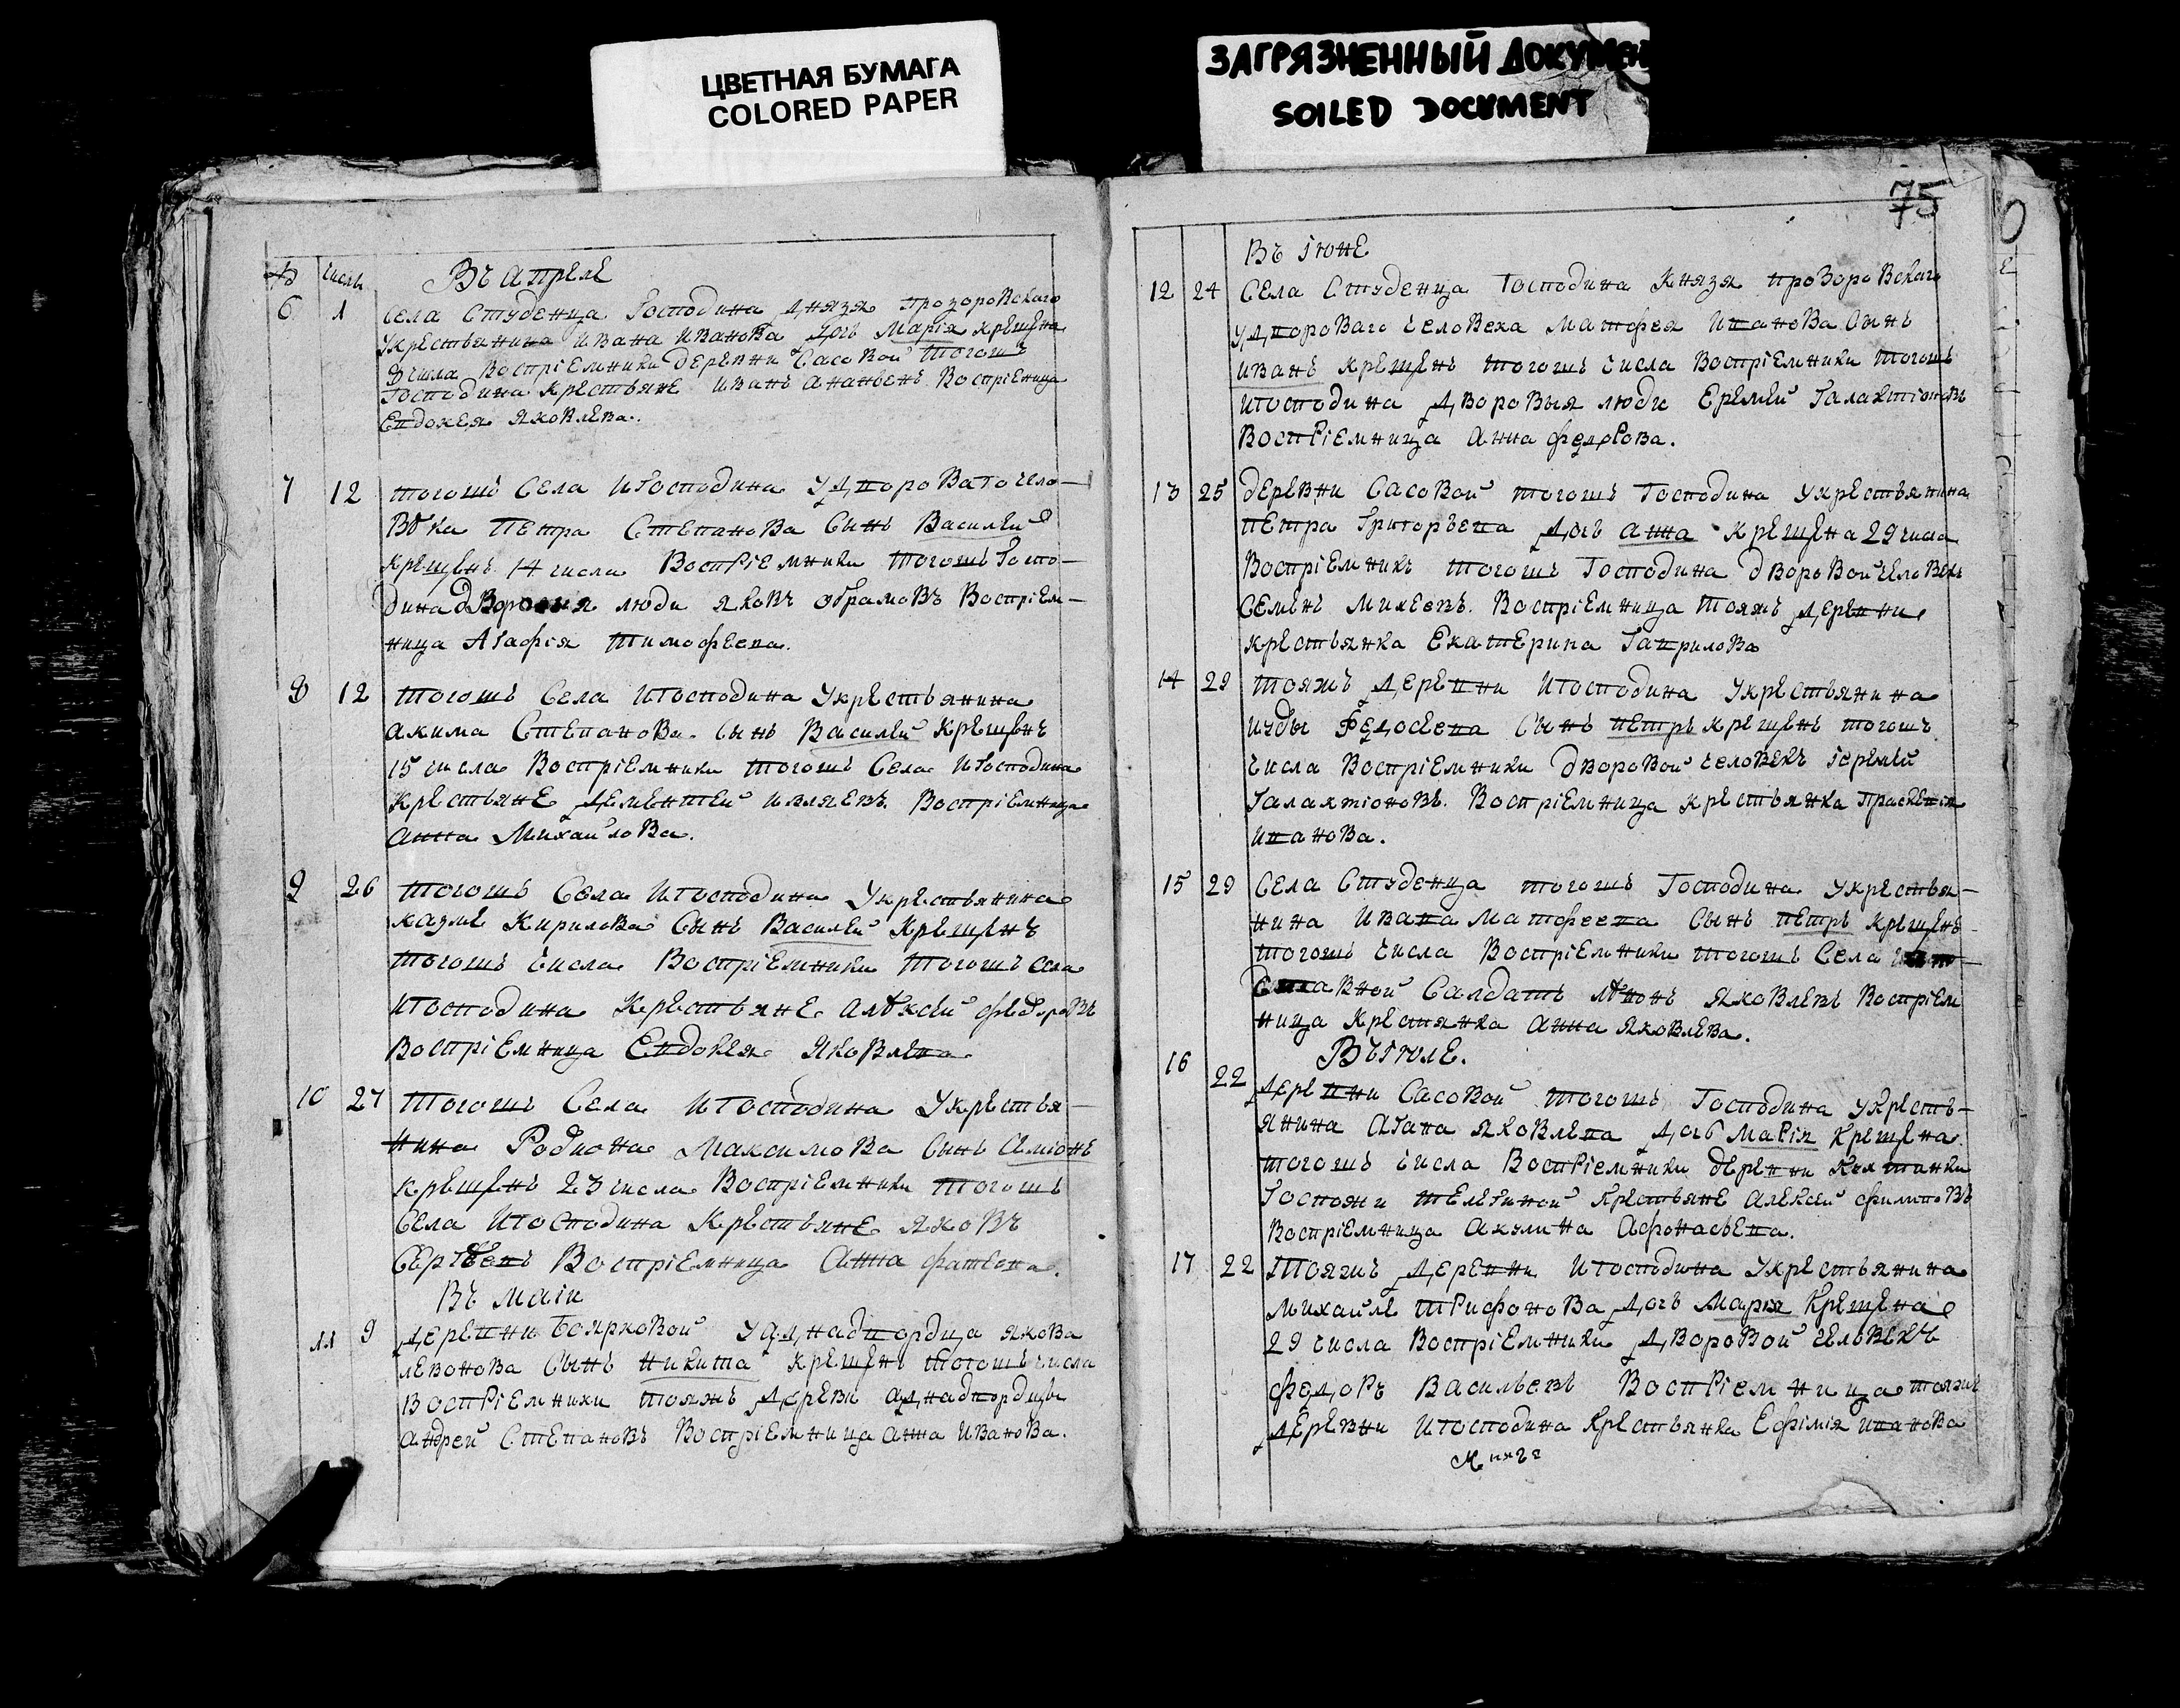 ЦВЕТНАЯ БУМАГА
COLORED PAPER
ЗАГРЯЗНЕННЫЙ ДОКУМЕН
SOILED DOCUMENT
75
№ числ Въ апреле
6 1 села Студенца Господина Князя прозоровскаго
укрестьянина ивана иванова дочь Марія крещена
числа воспріемники деревни Сасовой тогожъ
Господина крестьяне иванъ ананьевъ воспріемница
Евдокея яковлева.
7 12 тогожъ Села иГосподина удворовато чело-
вѣка Петра Степанова Сынъ Василей
крещенъ 14 числа Воспріемники тогожъ Госпо-
дина дворовыя люди яковъ обрамовъ Воспріем-
ница Агафія тимофеева.
8 12 тогожъ Села иГосподина укрестьянина
акима Степанова Сынъ Василей крещенъ
15 числа Воспріемники тогожъ Села иГосподина
Крестьяне дементей Воспріемница
анна Михайлова.
9 26 тогожъ Села иГосподина укрестьянина
казме Кирилова Сынъ Василей крещенъ
тогожъ числа Воспріемники тогожъ села
иГосподина крестьяне алѣксей федоровъ
воспріемница Евдокея яковлева
10 27 тогожъ Села иГосподина укрестья-
нина Родиона Максимова Сынъ
крещенъ 23 числа Воспріемники тогожъ
Села иГосподина крестьяне яковъ
Сергѣевъ Воспріемница анна фатеева.
Въ маіи
11 9 деревни Боярковой яковa
левонова Сынъ никита крещенъ тогожъ числа
воспріемники тояжъ
андрей Степановъ Воспріемница анна иванова.
Въ іюне
12 24 Села Студенца Господина Князя прозоровскаго
удвороваго человека матфея иванова Сынъ
иванъ крещенъ тогожъ числа Воспріемники тогожъ
иГосподина дворовыя люди еремей Галактіоновъ
воспріемница анна федорова.
13 25 деревни Сасовой тогожъ Господина укрестьянина
петра Григорьева дочь анна крещена 29 числа
воспріемникъ тогожъ Господина дворовой человекъ
Семенъ михеевъ. Воспріемница тояжъ деревни
крестьянка Екатерина Гаврилова
14 29 тояжъ деревни иГосподина укрестьянина
Федосеева Сынъ петръ крещенъ тогожъ
числа Воспріемники дворовой человекъ іеремей
Галактіоновъ. Воспріемница крестьянка
иванова.
15 29 Села Студенца тогожъ Господина укрестья-
нина ивана матфеева Сынъ петръ крещенъ
тогожъ числа Воспріемники тогожъ Села
Салдатъ яковлевъ Воспріем
ница анна яковлева.
Въ іюле.
16 22 деревни Сасовой тогожъ Господина укресть-
янина яковлева дочь Марія крещена
тогожъ числа Воспріемники деревни
Госпожи крестьяне алексей филиповъ
воспріемница акулина афонасьева.
17 22 Тояжъ деревни иГосподина укрестьянина
михайле трифонова дочь Марія крещена
29 числа Воспріемники дворовой человекъ
федоръ Васильевъ Воспріемница тояжъ
деревни иГосподина крестьянка Ефімія иванова